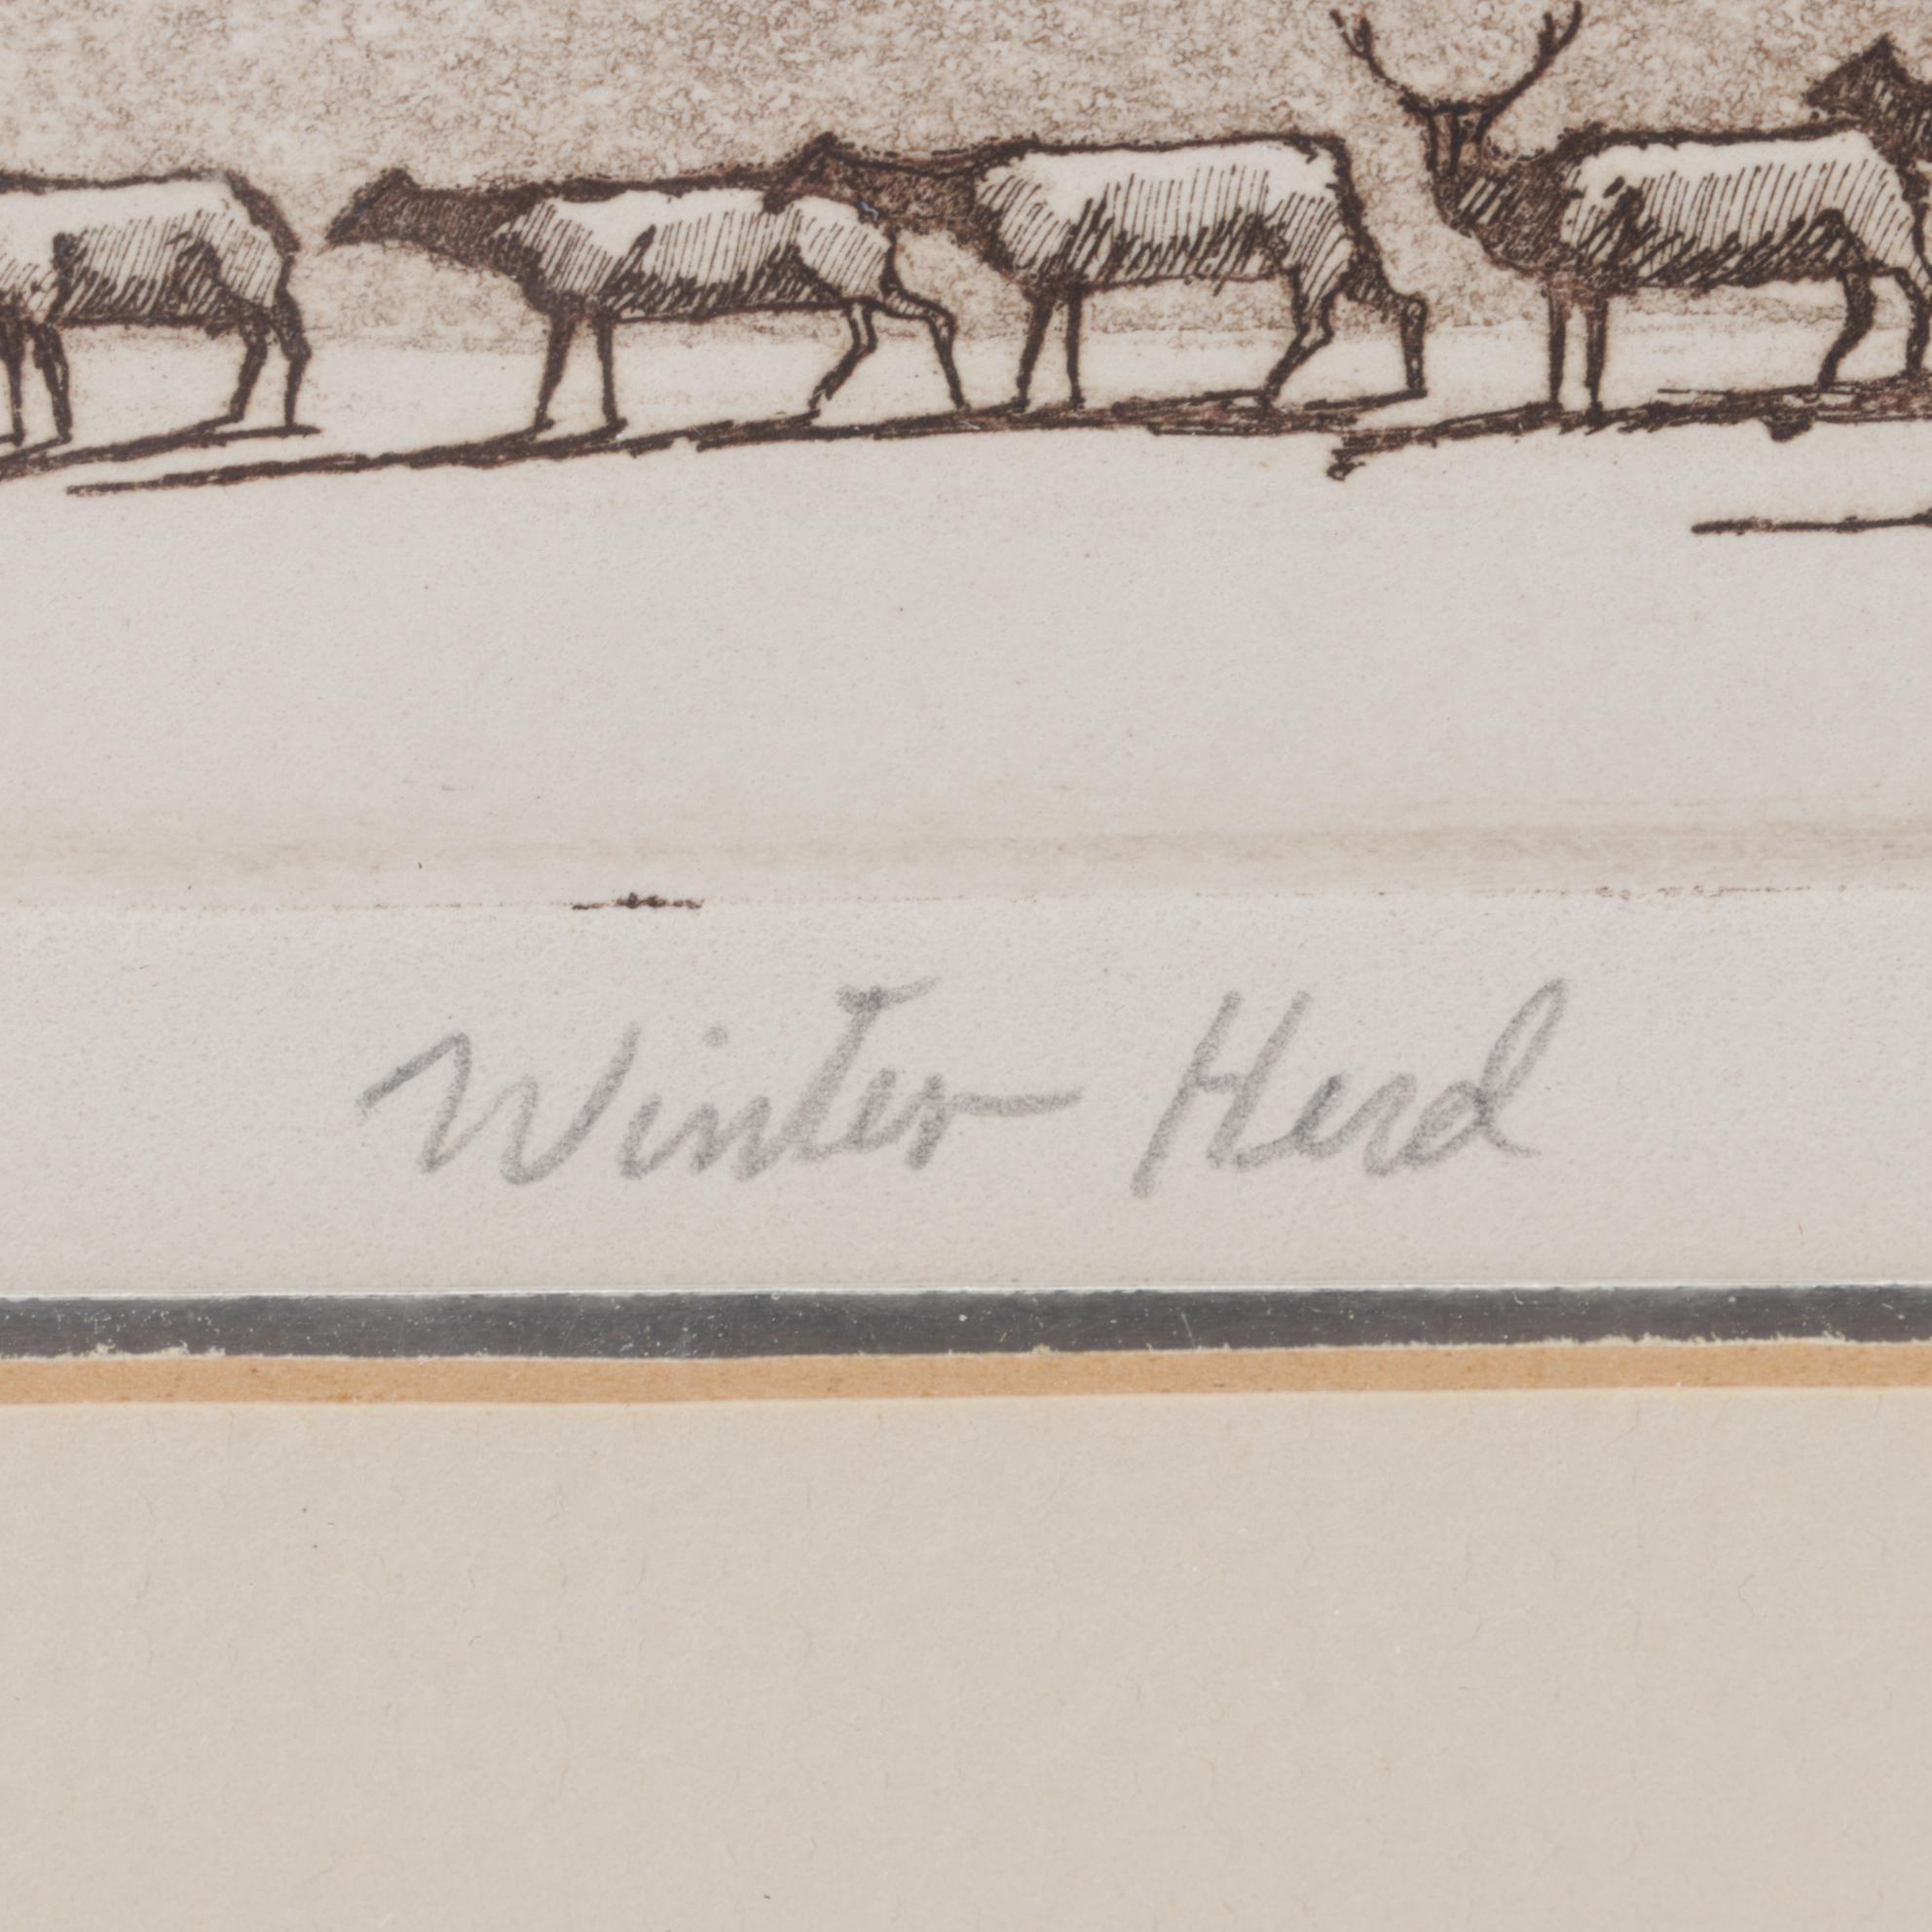 Winter Herd